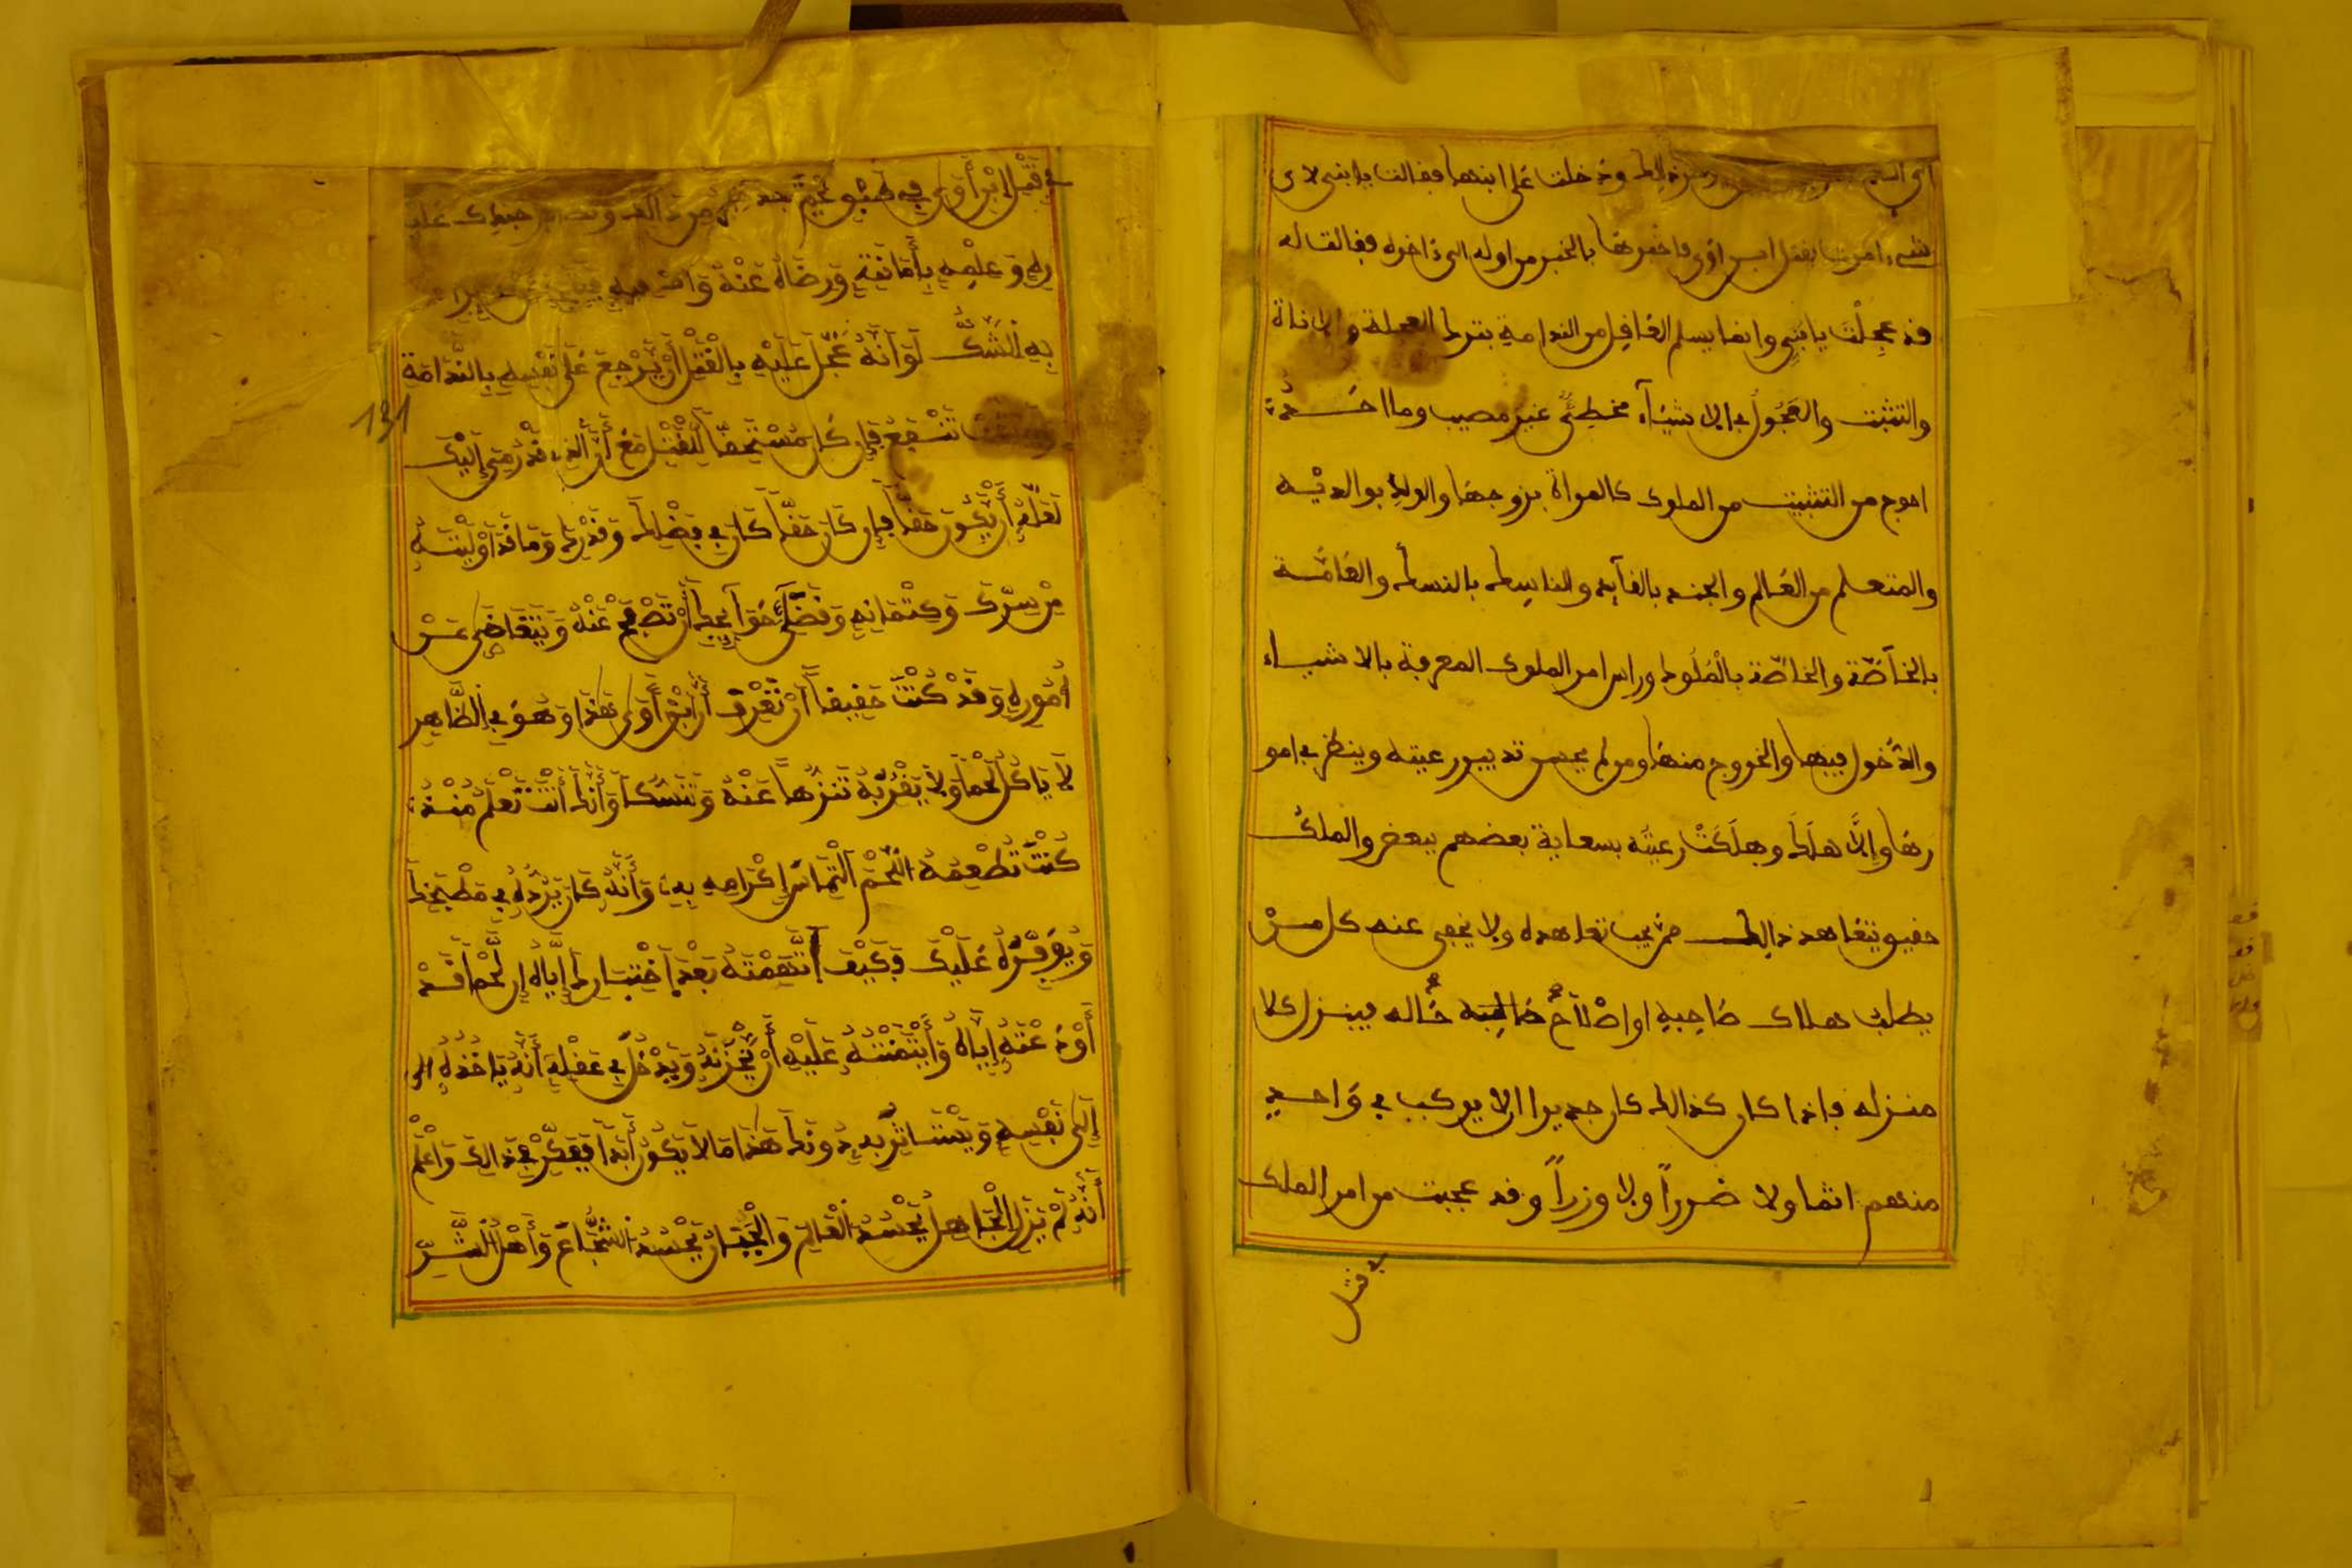 ذلك ودخلت على ابنها فقالت يا بنى لاى
شىء امرت بقتل ابن اوى فاخبرها بالخبر من اوله الى ءاخره فقالت له
قد عجلت يا بني وانما يسلم العاقل من الندامة بترك العجلة والاناة
والتثبت والعجول في الاشياء مخطئ غير مصيب وما احد
احوج من التثبت من الملوك كالمراة بزوجها والولد بوالديه
والمتعلم من العالم والجند بالقآيد والناسك بالنسك والعامة
بالخاصة والخاصة بالملوك وراس امر الملوك المعرفة بالاشياء
والدخول فيها والخروج منها ومن لم يحسن تدبير رعيته وينظر في امو
رها والا هلك وهلكت رعيته بسعاية بعضهم ببعض والملك
حقيق يتعاهد ذلك ممن يجب تعاهده ولا يخفى عنه كل من
يطلب هلاك صاحبه او اصلاح حاله فينزل كلا
منزله فاذا كان كذالك كان جديرا ان لا يركب في واحد
منهم اثما ولا ضررا ولا وزرا وقد عجبت من امر الملك
في قتل
في قَتْلِ اِبْنِ أَوَى فِي
وَعِلْمِهِ بِأَمَانَتِهِ وَرِضَاهُ عَنْهُ
بِهِ الشَّكُّ لَوْ أَنَّهُ عَجَّلَ عَلَيْهِ بِالْقَتْلِ أَنْ يَرْجِعَ عَلَى نَفْسِهِ بِالنَّدَامَةِ
131
فَإِنْ كَانَ مُسْتَحِقًّا لِلْقَتْلِ مَعَ أَنَّ الذِي قَدْ رُمِيَ إِلَيْكَ
لَعَلَّهُ أَنْ يَكُونَ حَقًّا فَإِنْ كَانَ حَقًّا كَانَ فِي فَضْلِكَ وَقَدْرِكَ وَمَا قَدْ أَوْلَيْتَهُ
مِنْ سِرِّكَ وَكِتْمَانِهِ وَقَضَآءِ حَوَآئِجِكَ أَنْ تَصْفَحَ عَنْهُ وَتَتَغَاضَى عَنْ
أُمُورِهِ وَقَدْ كُنْتَ حَقِيقًا أَنْ تَعْرِفَ أَنَّ اِبْنَ أَوَى هَذَا وَهُوَ فِي الظَّاهِرِ
لَا يَاكُلُ لَحْمًا وَلَا يَقْرُبُهُ تَنَزُّهًا عَنْهُ وَتَنَسُّكًا وَأَنَّكَ أَنْتَ تَعْلَمُ مُنْذُ
كُنْتَ تُطْعِمُهُ اللَّحْمَ اَلْتِمَاسَ إِكْرَامِهِ بِهِ وَأَنَّهُ كَانَ يَرُدُّهُ فِي مَطْبَخِكَ
وَيُوَفِّرُهُ عَلَيْكَ وَكَيْفَ اَتَّهَمْتَهُ بَعْدَ اِخْتِبَارِكَ إِيَّاهُ إِنَّ لَحْمًا قَدْ
أَوْدَعْتَهُ إِيَّاهُ وَأَيْتَمَنْتَهُ عَلَيْهِ أَنْ يَخْزُنَهُ وَيَدْخُلُ فِي عَقْلِهِ أَنَّهُ يَاخُذُهُ الى
إِلَى نَفْسِهِ وَيَسْتَاثِرُ بِهِ دُونَكَ هَذَا مَا لَا يَكُونُ أَبَدًا فَفَكِّرْ فِي ذَالِكَ وَاعْلَمْ
أَنَّهُ لَمْ يَزَلِ الْجَاهِلُ يَحْسُدُ الْعَالِمَ وَالْجَبَانُ يَحْسُدُ الشُّجَاعَ وَأَهْلُ الشَّرِّ